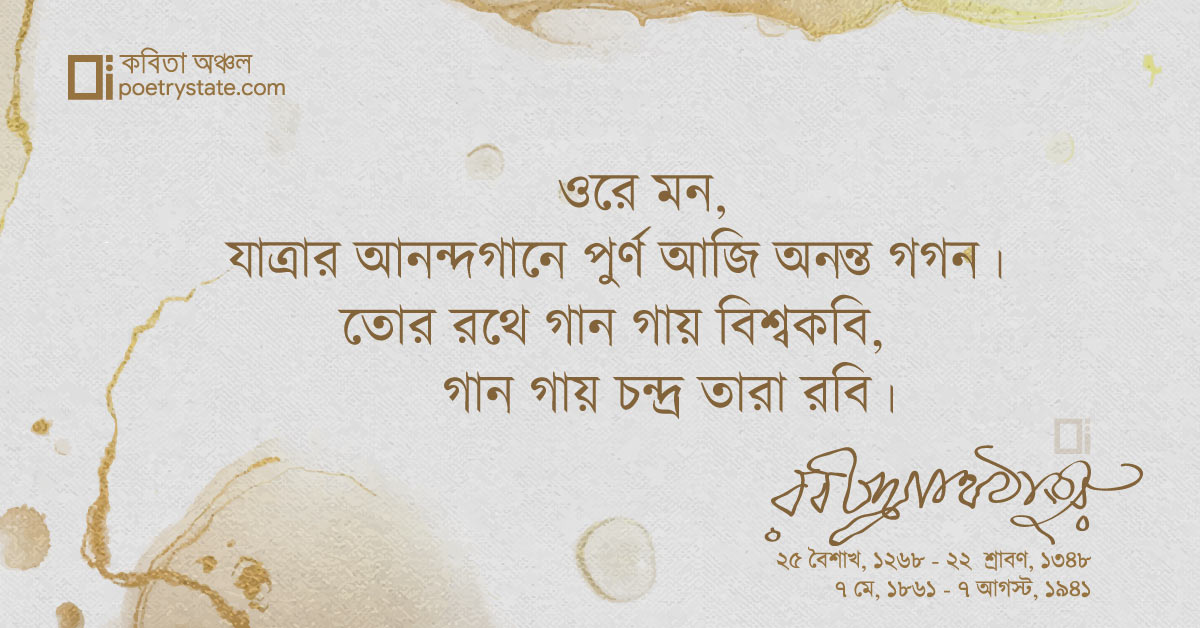 কবিতা অঞ্চল
poetrystate.com
ওরে মন,
যাত্রার আনন্দগানে পুর্ণ আজি অনন্ত গগন।
তোর রথে গান গায় বিশ্বকবি,
গান গায় চন্দ্র তারা রবি।
রবীন্দ্রনাথ ঠাকুর
২৫ বৈশাখ, ১২৬৮ - ২২ শ্রাবণ, ১৩৪৮
৭ মে, ১৮৬১ - ৭ আগস্ট, ১৯৪১